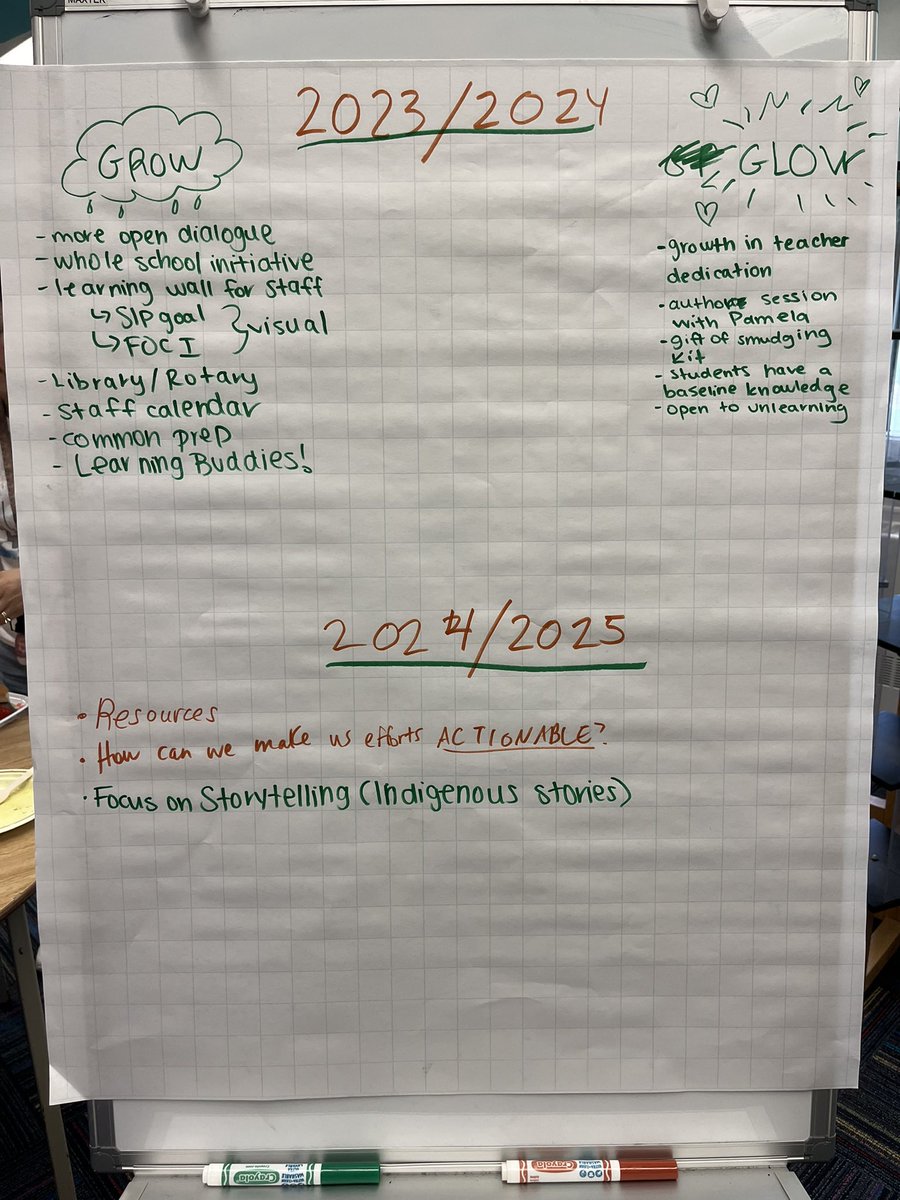 MAXTER
2023/2024
GROW
- more open dialogue
- whole school initiative
- learning wall for staff
↳ SIP goal
↳ FOCI
} visual
- Library/Rotary
- Staff calendar
- common prep
- Learning Buddies!
GLOW
- growth in teacher
dedication
- author session
with Pamela
- gift of smudging
kit
- Students have a
baseline knowledge
- open to unlearning
2024/2025
• Resources
• How can we make us efforts ACTIONABLE?
• Focus on Storytelling (Indigenous stories)
Crayola
Crayola